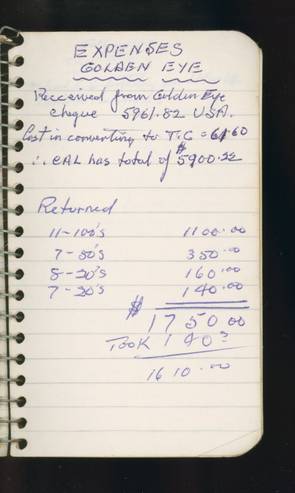 EXPENSES
GOLDEN EYE
Received from Golden Eye
cheque 5961.82 USA.
Cost in converting to T.C = 61.60
∴ CAL has total of $5900.22
Returned
11-100's 1100.00
7-50's 350.00
8-20's 160.00
7-20's 140.00
$1750.00
TOOK 140?
1610.00